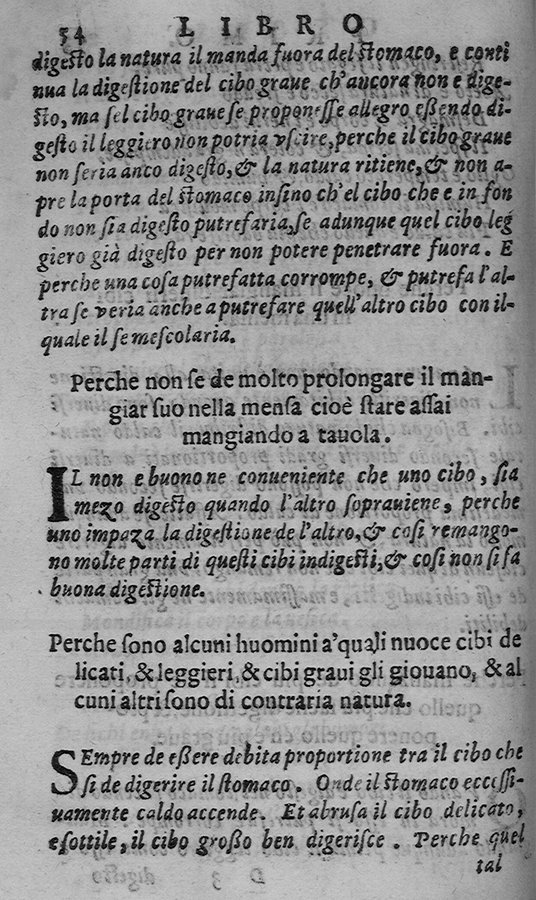 54 LIBRO
digeſto la natura il manda fuora del ſtomaco, e conti
nua la digeſtione del cibo graue ch'ancora non e dige-
ſto, ma ſel cibo graue ſe proponeſſe allegro eßendo di-
geſto il leggiero non potria vſcire, perche il cibo graue
non ſeria anco digeſto, & la natura ritiene, & non a-
pre la porta del ſtomaco inſino ch'el cibo che e in fon
do non ſia digeſto putrefaria, ſe adunque quel cibo leg
giero già digeſto per non potere penetrare fuora. E
perche una coſa putrefatta corrompe, & putrefa l'al-
tra ſe veria anche a putrefare quell'altro cibo con il-
quale il ſe meſcolaria.
Perche non ſe de molto prolongare il man-
giar ſuo nella menſa cioè ſtare aſſai
mangiando a tauola.
IL non e buono ne conueniente che uno cibo, ſia
mezo digeſto quando l'altro ſoprauiene, perche
uno impaza la digeſtione de l'altro, & coſi remango-
no molte parti di queſti cibi indigeſti, & coſi non ſi fa
buona digeſtione.
Perche ſono alcuni huomini a'quali nuoce cibi de
licati, & leggieri, & cibi graui gli giouano, & al
cuni altri ſono di contraria natura.
SEmpre de eßere debita proportione tra il cibo che
ſi de digerire il ſtomaco. Onde il ſtomaco ecceſſi-
uamente caldo accende. Et abruſa il cibo delicato,
e ſottile, il cibo großo ben digeriſce. Perche quel
tal